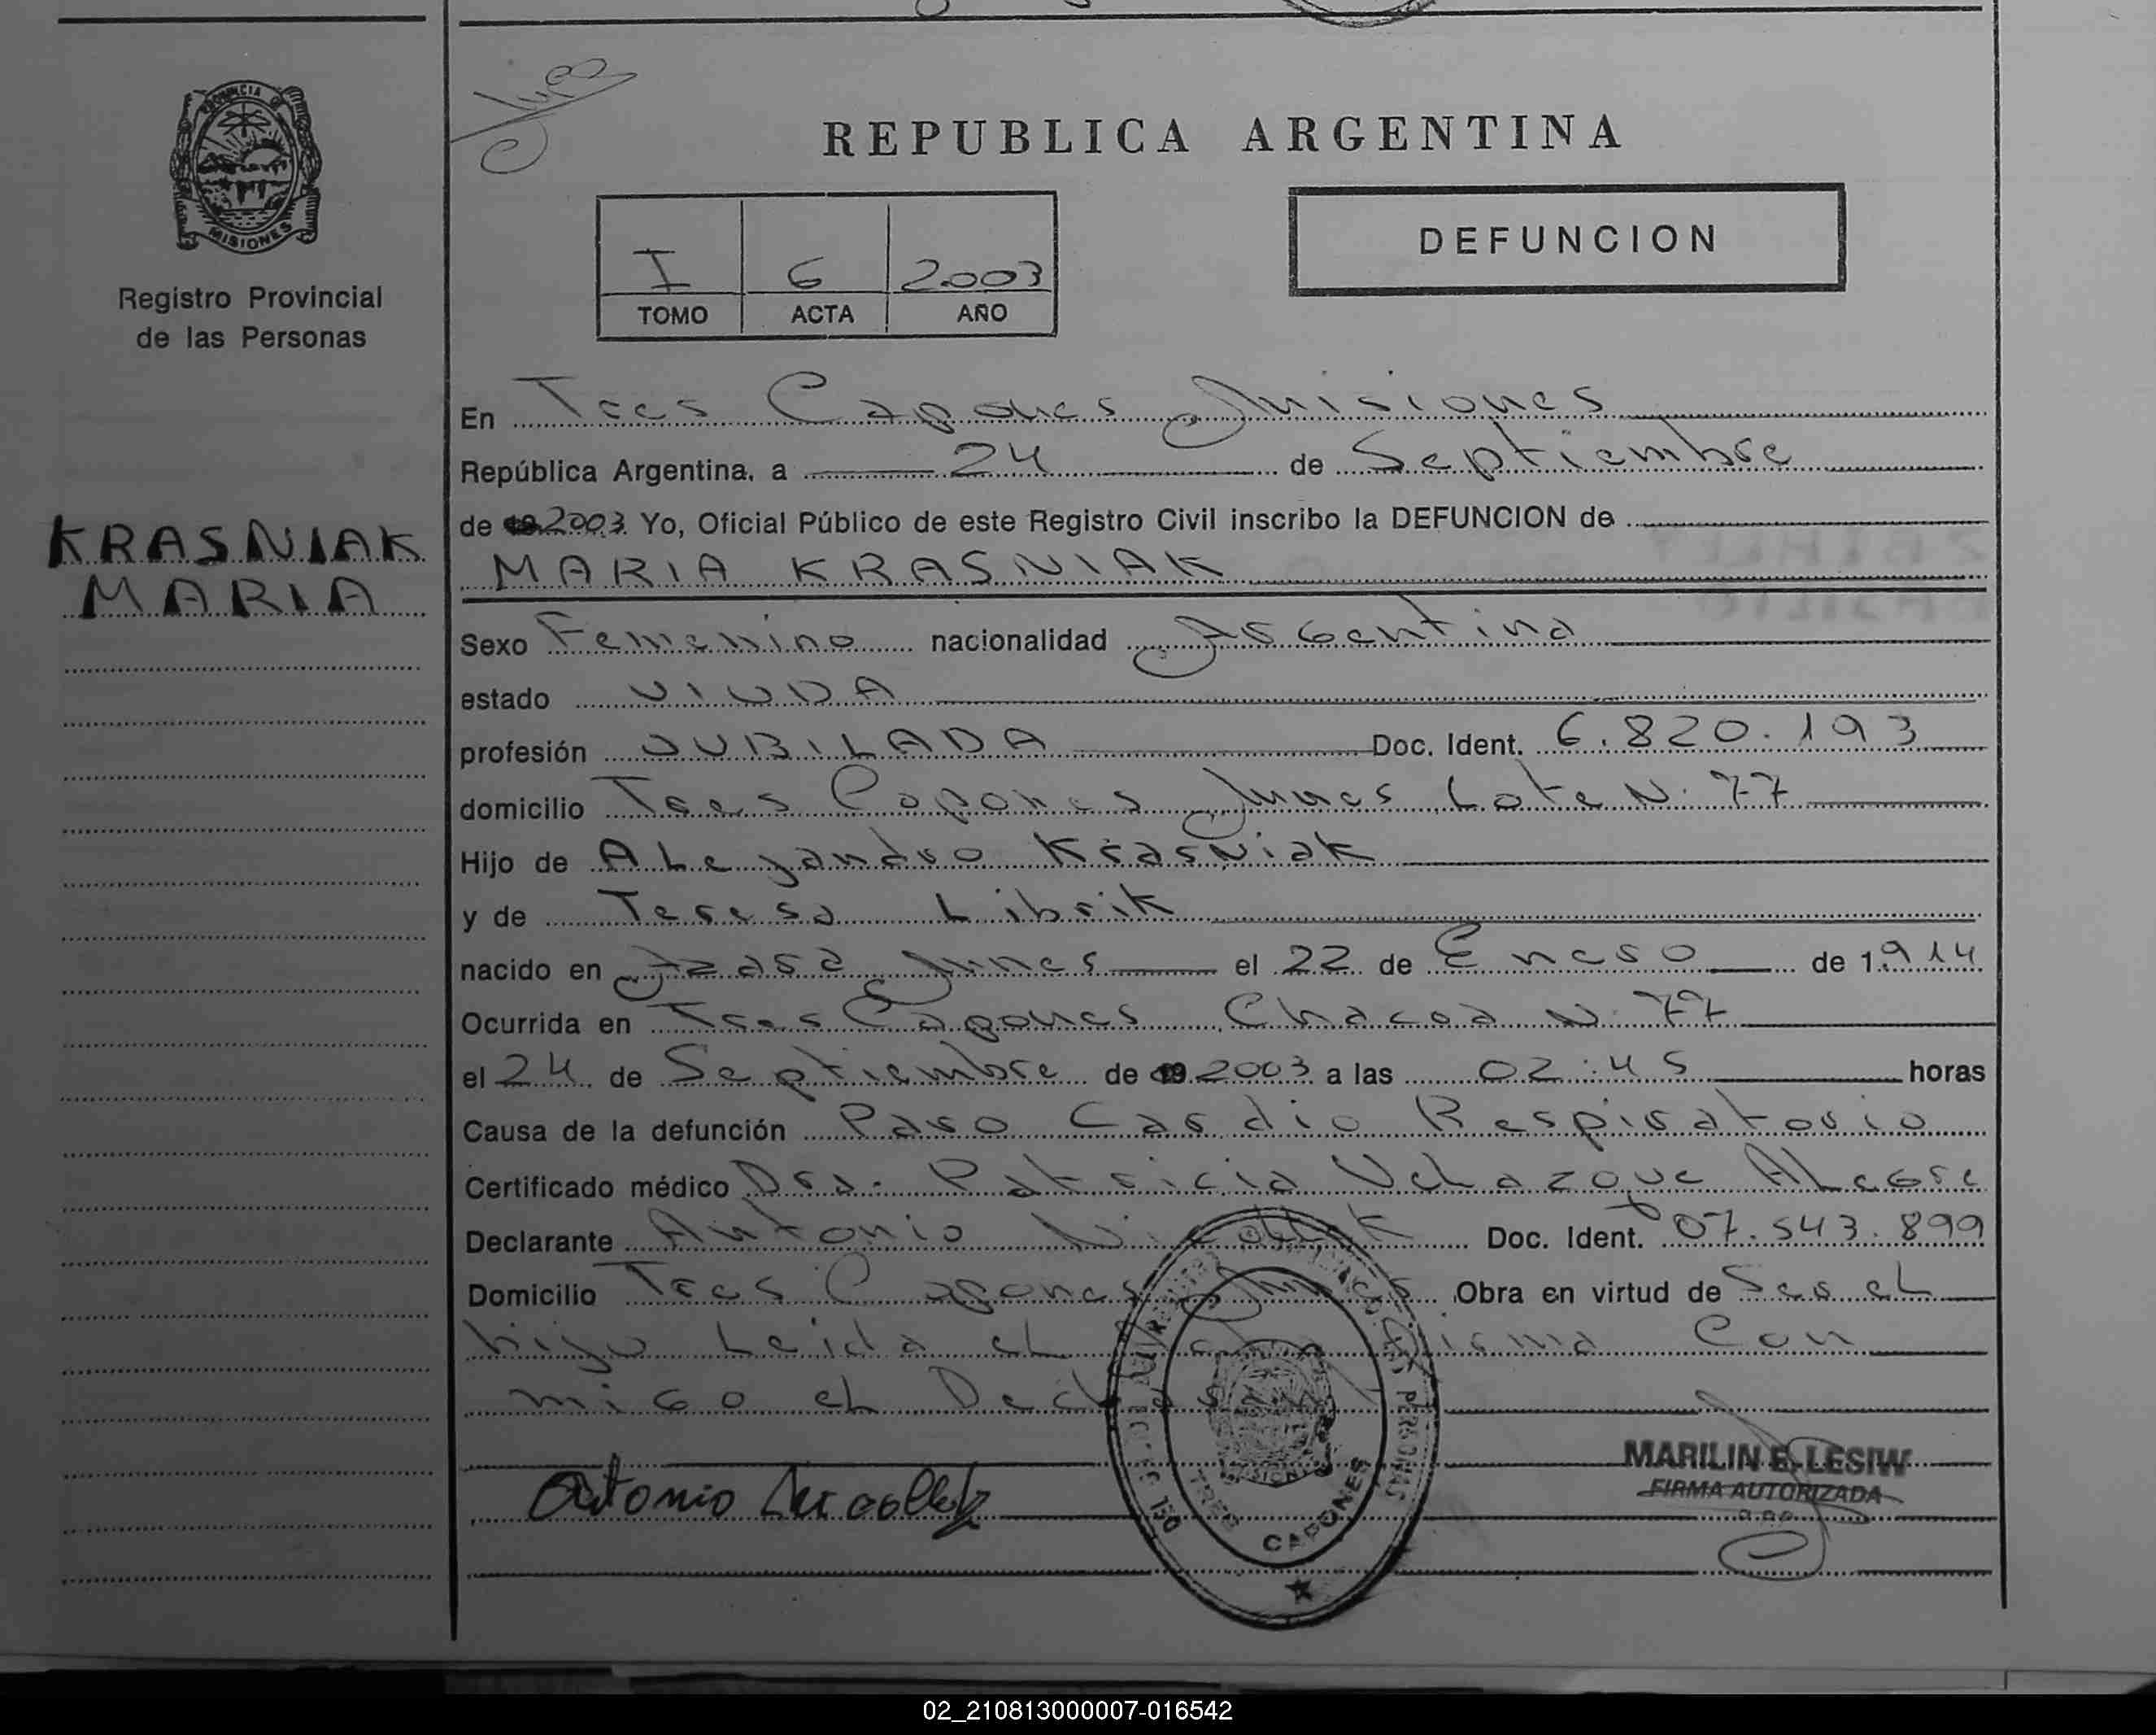 PROVINCIA DE
MISIONES
Registro Provincial
de las Personas
KRASNIAK
MARIA
REPUBLICA ARGENTINA
I 6 2003
TOMO ACTA AÑO
DEFUNCION
En Tres Capones Misiones
República Argentina, a 24 de Septiembre
de 2003 Yo, Oficial Público de este Registro Civil inscribo la DEFUNCION de
MARIA KRASNIAK
Sexo Femenino nacionalidad Argentina
estado VIUDA
profesión JUBILADA Doc. Ident. 6.820.193
domicilio Tres Capones Mnes Lote N. 77
Hijo de ALejandro Krasniak
y de Teresa Librik
nacido en Azara Mnes el 22 de Enero de 1914
Ocurrida en Tres Capones Chacra N. 77
el 24 de Septiembre de 19 2003 a las 02:45 horas
Causa de la defunción Paro Cardio Respiratorio
Certificado médico Dra. Patricia Velazque ALegre
Declarante Antonio Doc. Ident. 07.543.899
Domicilio Tres Capones Mnes Obra en virtud de Ser el
hijo Leida el Con
migo el
Antonio
TRES CAPONES
MARILIN E. LESIW
FIRMA AUTORIZADA
02_210813000007-016542